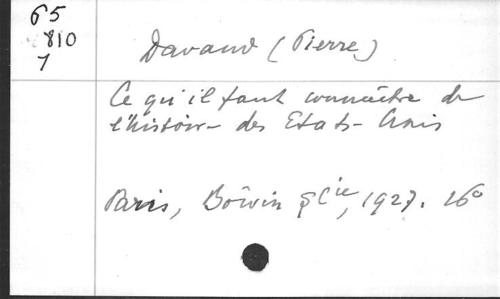 65
810
1
Davaud (Pierre)
Ce qu'il faut connaître de
l'histoire des Etats-Unis
Paris, Boivin & Cie, 1927. 16°